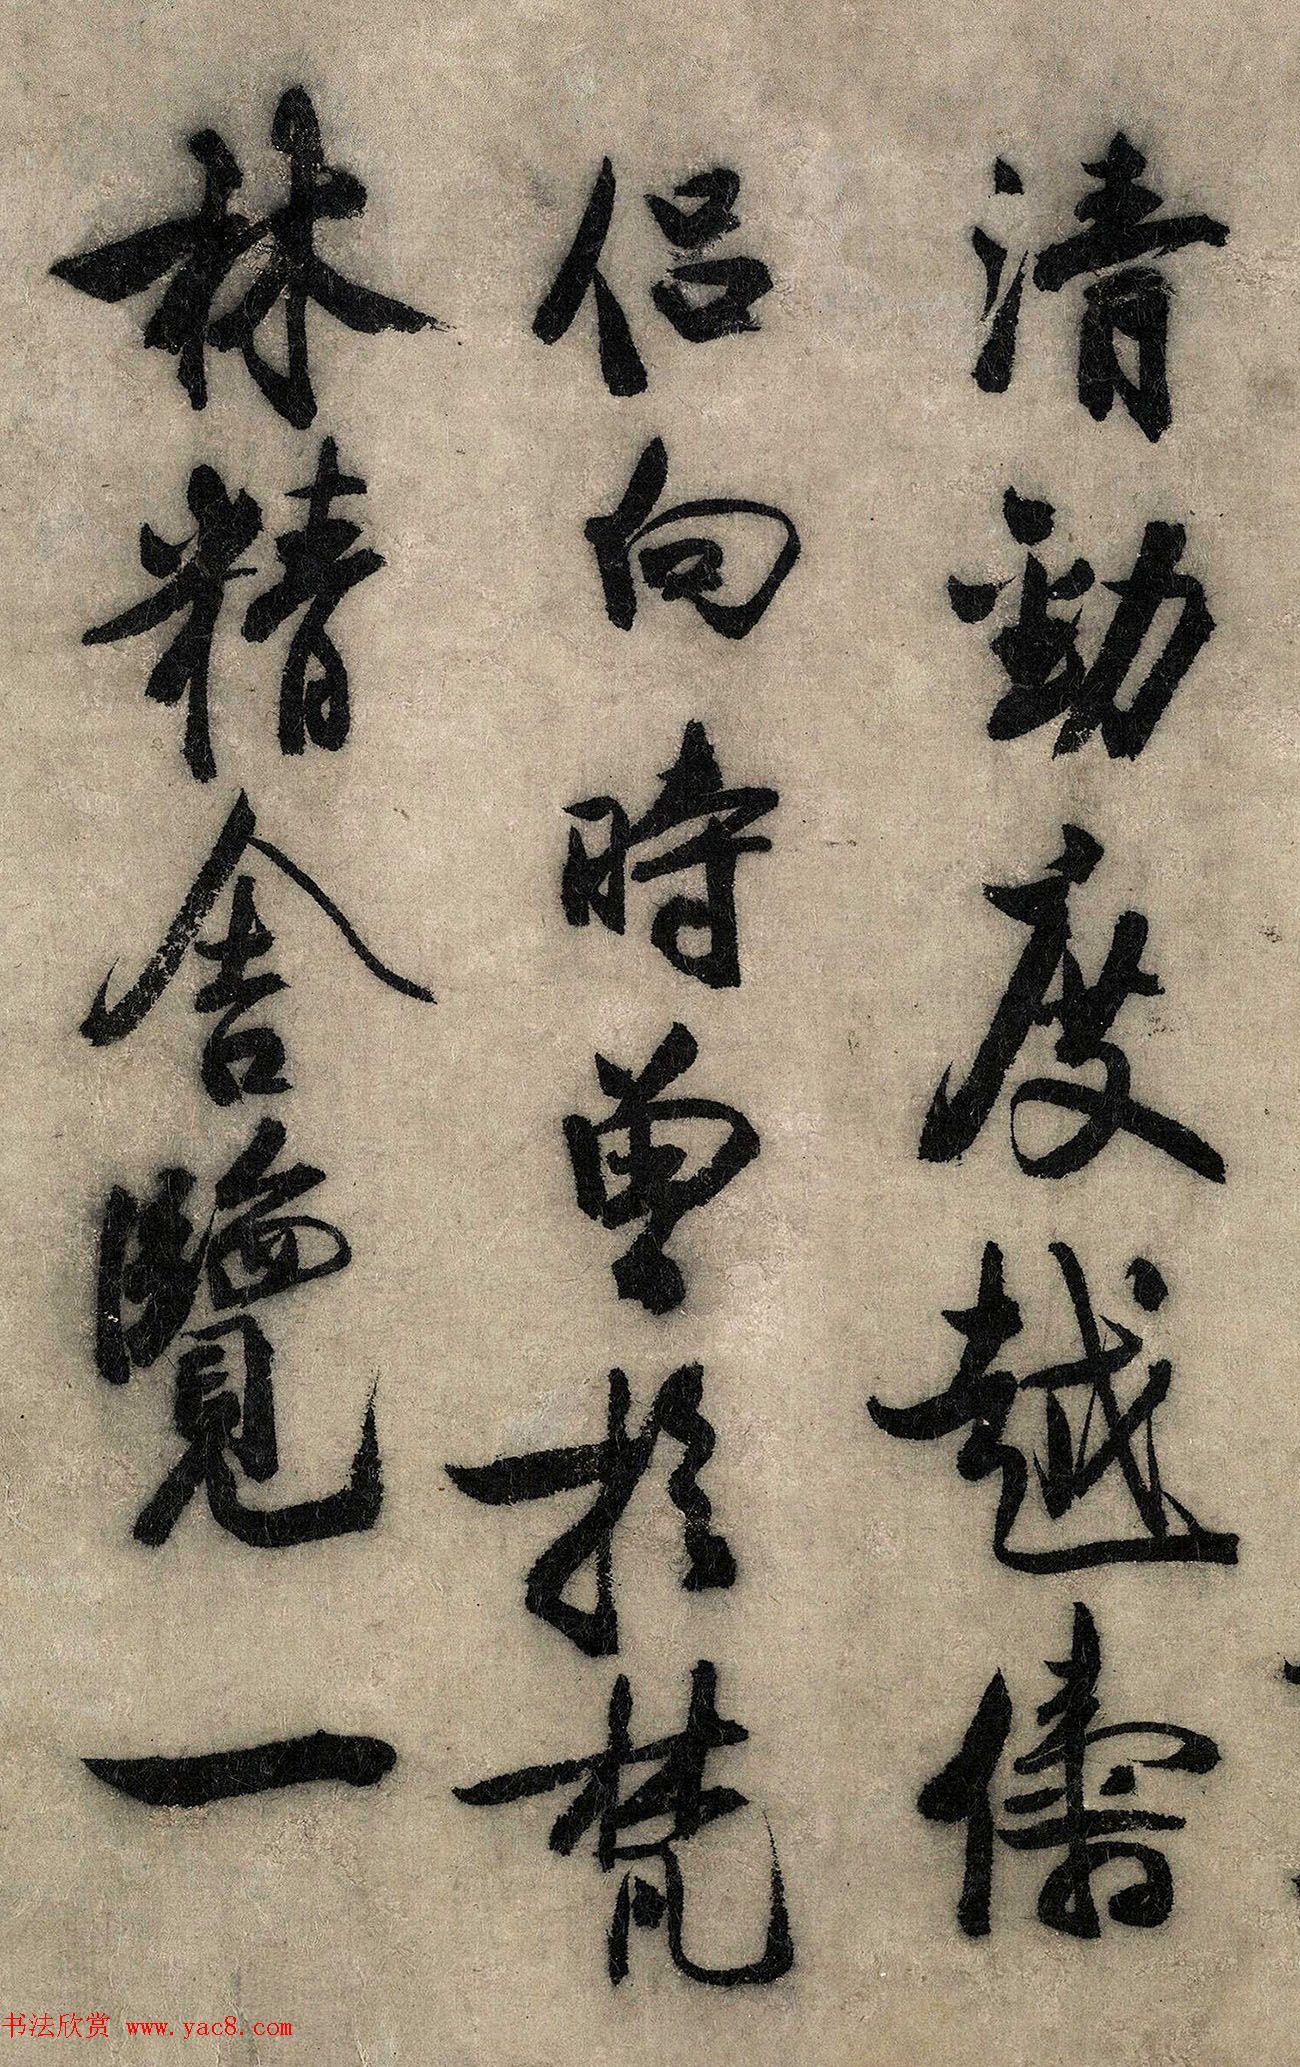 清勁度越儔
侣向時曽於梵
林精舎覽一
书法欣赏 www.yac8.com